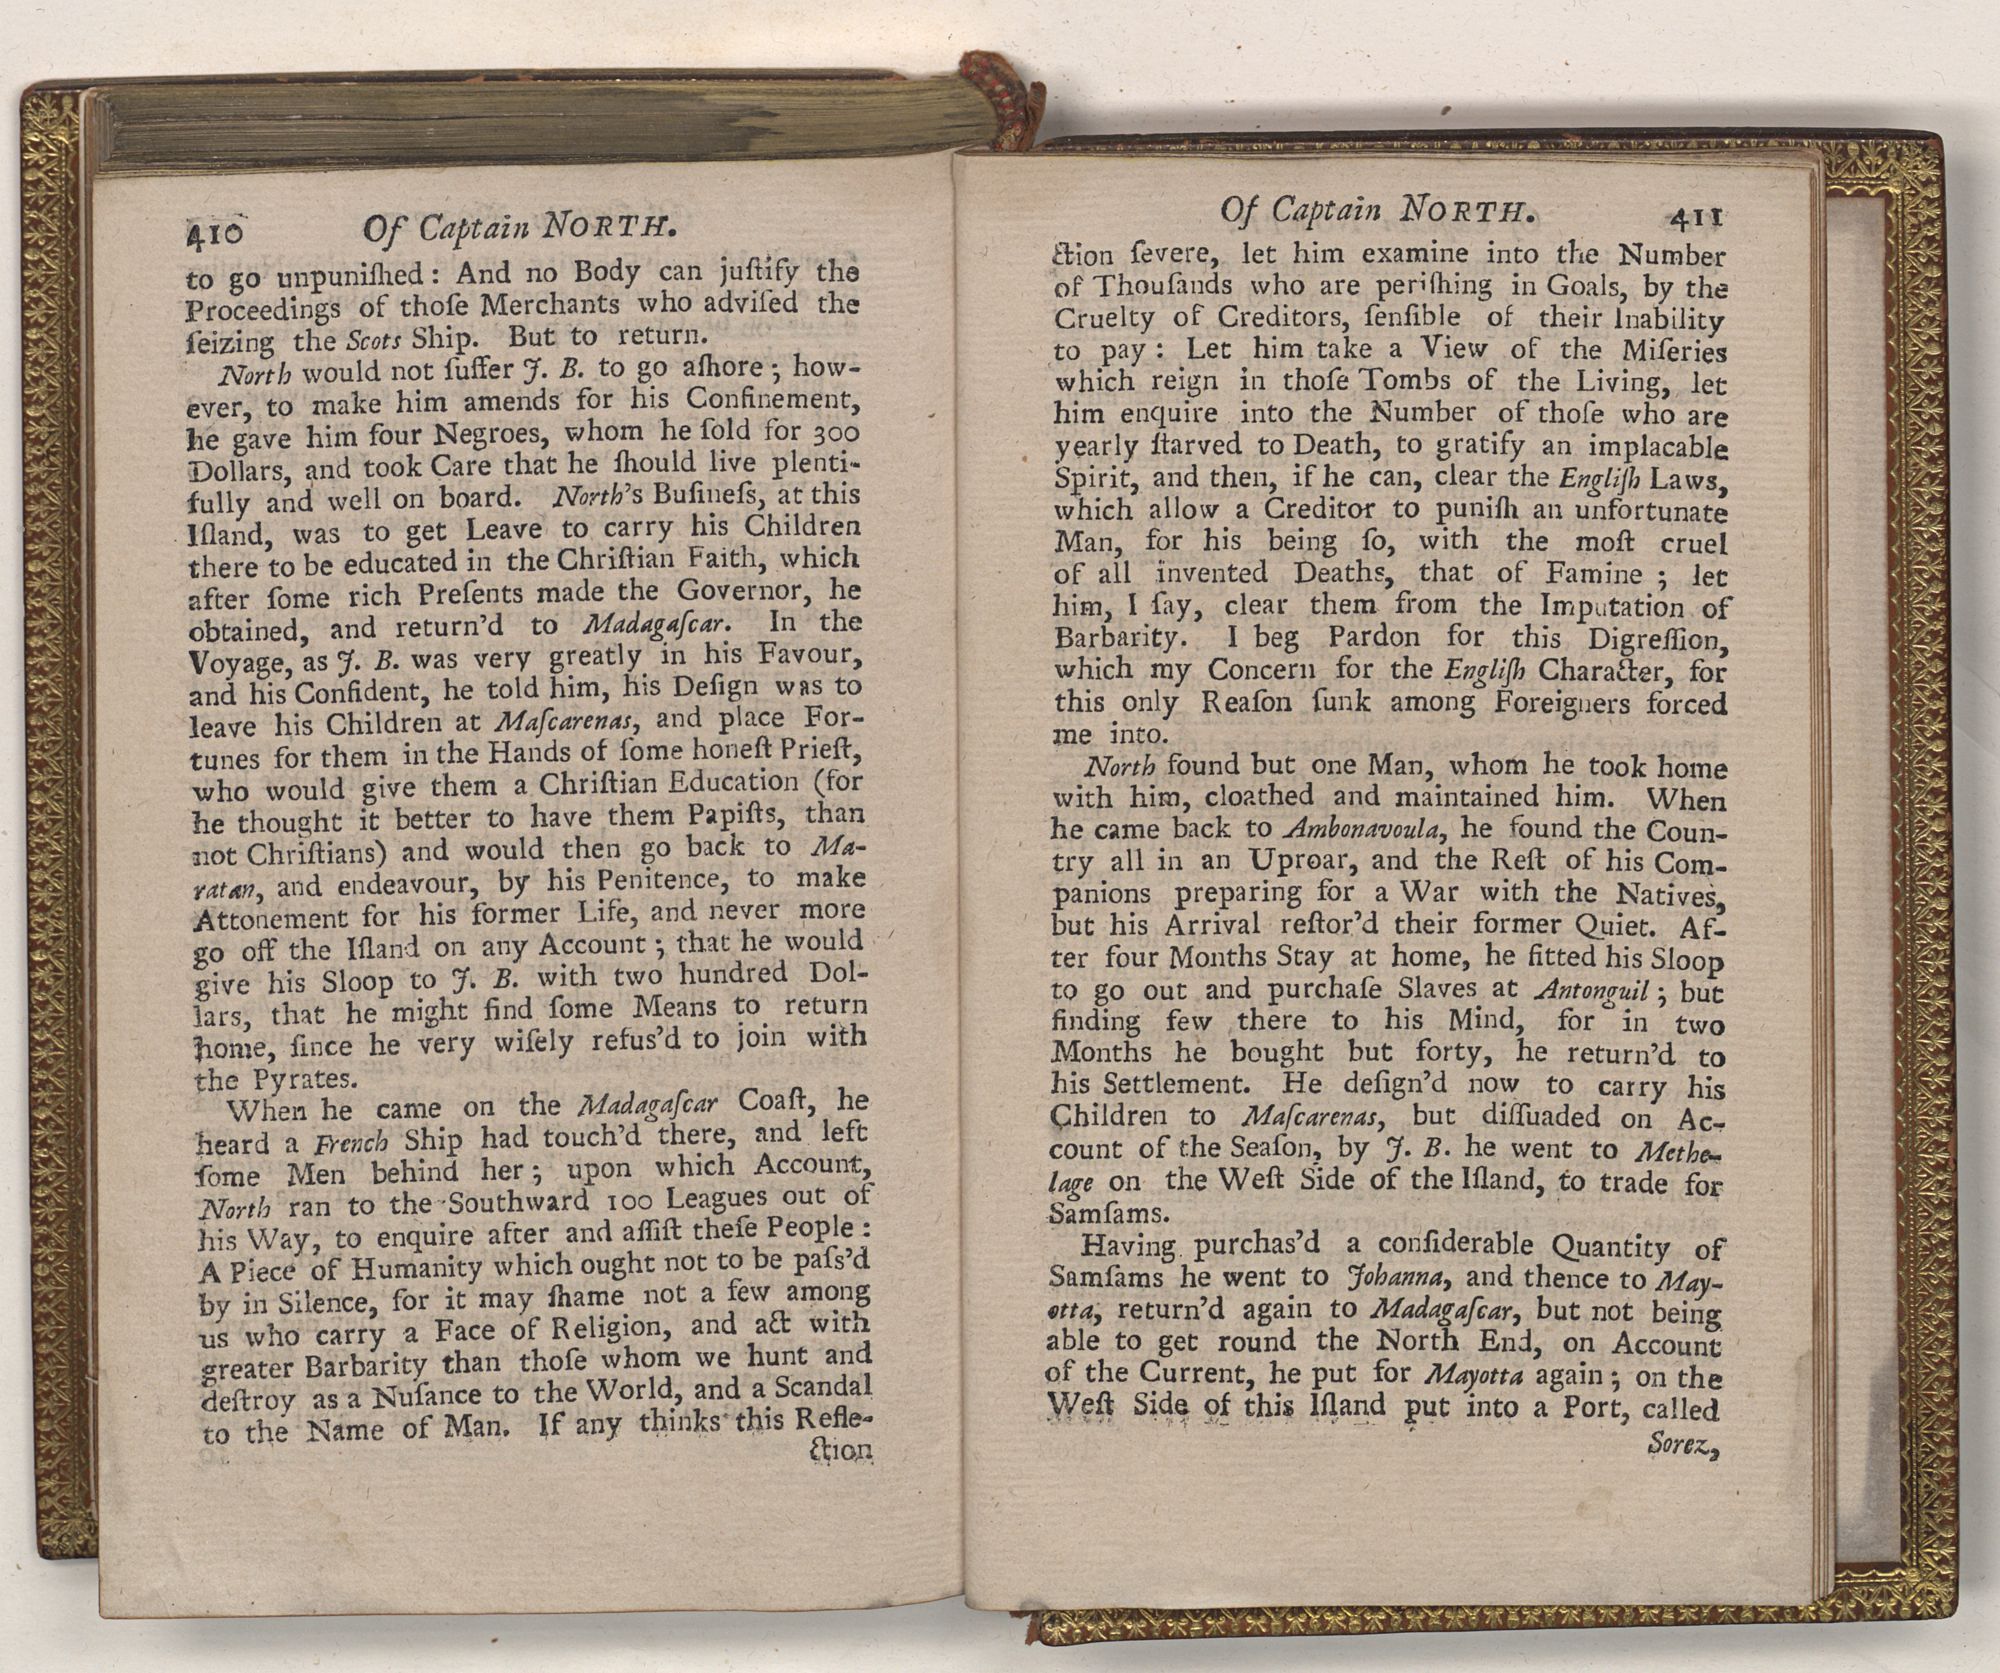 410 Of Captain NORTH.
to go unpuniſhed: And no Body can juſtify the
Proceedings of thoſe Merchants who adviſed the
ſeizing the Scots Ship. But to return.
North would not ſuffer J. B. to go aſhore; how-
ever, to make him amends for his Confinement,
he gave him four Negroes, whom he ſold for 300
Dollars, and took Care that he ſhould live plenti-
fully and well on board. North's Buſineſs, at this
Iſland, was to get Leave to carry his Children
there to be educated in the Chriſtian Faith, which
after ſome rich Preſents made the Governor, he
obtained, and return'd to Madagaſcar. In the
Voyage, as J. B. was very greatly in his Favour,
and his Confident, he told him, his Deſign was to
leave his Children at Maſcarenas, and place For-
tunes for them in the Hands of ſome honeſt Prieſt,
who would give them a Chriſtian Education (for
he thought it better to have them Papiſts, than
not Chriſtians) and would then go back to Ma-
ratan, and endeavour, by his Penitence, to make
Attonement for his former Life, and never more
go off the Iſland on any Account; that he would
give his Sloop to J. B. with two hundred Dol-
lars, that he might find ſome Means to return
home, ſince he very wiſely refus'd to join with
the Pyrates.
When he came on the Madagaſcar Coaſt, he
heard a French Ship had touch'd there, and left
ſome Men behind her; upon which Account,
North ran to the Southward 100 Leagues out of
his Way, to enquire after and aſſiſt theſe People:
A Piece of Humanity which ought not to be paſs'd
by in Silence, for it may ſhame not a few among
us who carry a Face of Religion, and act with
greater Barbarity than thoſe whom we hunt and
deſtroy as a Nuſance to the World, and a Scandal
to the Name of Man. If any thinks this Refle-
ction
Of Captain NORTH. 411
ction ſevere, let him examine into the Number
of Thouſands who are periſhing in Goals, by the
Cruelty of Creditors, ſenſible of their Inability
to pay: Let him take a View of the Miſeries
which reign in thoſe Tombs of the Living, let
him enquire into the Number of thoſe who are
yearly ſtarved to Death, to gratify an implacable
Spirit, and then, if he can, clear the Engliſh Laws,
which allow a Creditor to puniſh an unfortunate
Man, for his being ſo, with the moſt cruel
of all invented Deaths, that of Famine; let
him, I ſay, clear them from the Imputation of
Barbarity. I beg Pardon for this Digreſſion,
which my Concern for the Engliſh Character, for
this only Reaſon ſunk among Foreigners forced
me into.
North found but one Man, whom he took home
with him, cloathed and maintained him. When
he came back to Ambonavoula, he found the Coun-
try all in an Uproar, and the Reſt of his Com-
panions preparing for a War with the Natives,
but his Arrival reſtor'd their former Quiet. Af-
ter four Months Stay at home, he fitted his Sloop
to go out and purchaſe Slaves at Antonguil; but
finding few there to his Mind, for in two
Months he bought but forty, he return'd to
his Settlement. He deſign'd now to carry his
Children to Maſcarenas, but diſſuaded on Ac-
count of the Seaſon, by J. B. he went to Methe-
lage on the Weſt Side of the Iſland, to trade for
Samſams.
Having purchas'd a conſiderable Quantity of
Samſams he went to Johanna, and thence to May-
otta, return'd again to Madagaſcar, but not being
able to get round the North End, on Account
of the Current, he put for Mayotta again; on the
Weſt Side of this Iſland put into a Port, called
Sorez,